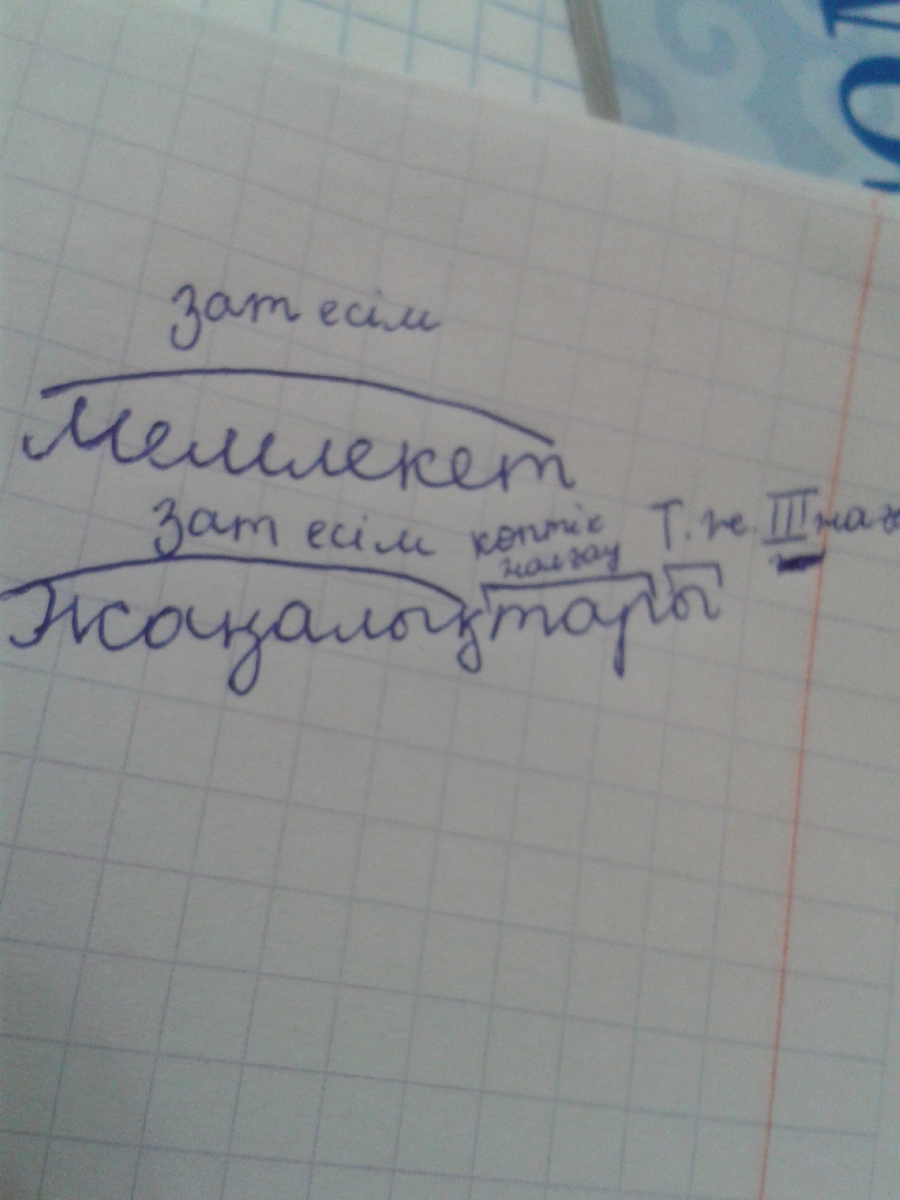 зат есім
Мемлекет
зат есім көптік жалғау Т.ж. III жақ
Жаңалықтары